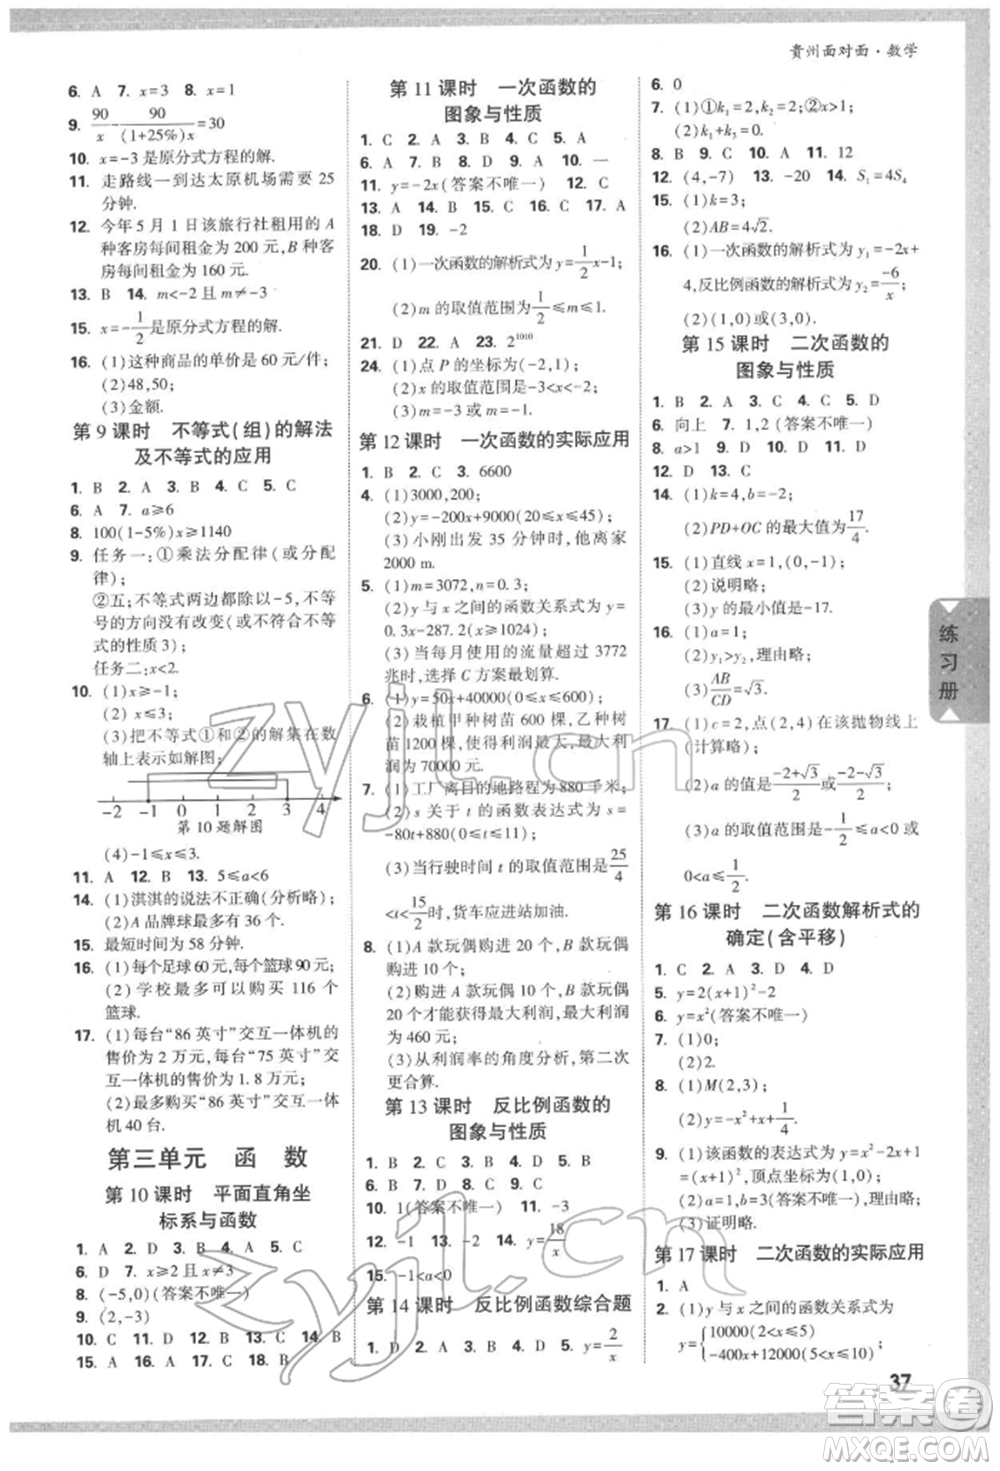 贵州面对面·数学
6. A 7. x=3 8. x=1
9. 90/x - 90/((1+25%)x) =30
10. x=-3是原分式方程的解.
11. 走路线一到达太原机场需要25
分钟.
12. 今年5月1日该旅行社租用的A
种客房每间租金为200元,B种客
房每间租金为160元.
13. B 14. m<-2且m≠-3
15. x=-1/2是原分式方程的解.
16. (1)这种商品的单价是60元/件;
(2)48,50;
(3)金额.
第9课时 不等式(组)的解法
及不等式的应用
1. B 2. A 3. B 4. B 5. B
6. A 7. a≥6
8. 100(1-5%)x≥1140
9. 任务一:①乘法分配律(或分配
律);
②五;不等式两边都除以-5,不等
号的方向没有改变(或不符合不等
式的性质3);
任务二:x<2.
10. (1)x≥-1;
(2) x≤3;
(3)把不等式①和②的解集在数
轴上表示如解图;
-2 -1 0 1 2 3 4
第10题解图
(4)-1≤x≤3.
11. A 12. B 13. 5≤a<6
14. (1)淇淇的说法不正确(分析略);
(2)A品牌球最多有36个.
15. 最短时间为58分钟.
16. (1)每个足球60元,每个篮球90元;
(2)学校最多可以购买116个
篮球.
17. (1)每台“86英寸”交互一体机的
售价为2万元,每台“75英寸”交
互一体机的售价为1.8万元;
(2)最多购买“86英寸”交互一体
机40台.
第三单元 函 数
第10课时 平面直角坐
标系与函数
1. A 2. D 3. B 4. A 5. C
6. D 7. x≥2且x≠3
8. (-5,0)(答案不唯一)
9. (2,-3)
10. C 11. C 12. D 13. B 14. B
15. A 16. A 17. C 18. B
第11课时 一次函数的
图象与性质
1. C 2. A 3. B 4. C 5. A
6. A 7. B 8. D 9. B 10. 一
11. y=-2x(答案不唯一) 12. C
13. A 14. A 15. D 16. C 17. A
18. D 19. -2
20. (1)一次函数的解析式为y=1/2x-1;
(2)m的取值范围为1/2≤m≤1.
21. D 22. A 23. 2^1010
24. (1)点P的坐标为(-2,1);
(2)x的取值范围是-3<x<-2;
(3)m=-3或m=-1.
第12课时 一次函数的实际应用
1. B 2. C 3. 6600
4. (1)3000,200;
(2)y=-200x+9000(20≤x≤45);
(3)小刚出发35分钟时,他离家
2000 m.
5. (1)m=3072,n=0.3;
(2)y与x之间的函数关系式为y=
0.3x-287.2(x≥1024);
(3)当每月使用的流量超过3772
兆时,选择C方案最划算.
6. (1)y=50x+40000(0≤x≤600);
(2)栽植甲种树苗600棵,乙种树
苗1200棵时,获得利润最大,最大利
润为70000元.
7. (1)工厂离目的地路程为880千米;
(2)s关于t的函数表达式为s=
-80t+880(0≤t≤11);
(3)当行驶时间t的取值范围是25/4
<t<15/2时,货车应进站加油.
8. (1)A款玩偶购进20个,B款玩偶
购进10个;
(2)购进A款玩偶10个,B款玩偶
20个才能获得最大利润,最大利润
为460元;
(3)从利润率的角度分析,第二次
更合算.
第13课时 反比例函数的
图象与性质
1. B 2. C 3. B 4. C 5. C
6. B 7. D 8. C 9. C
10. 1(答案不唯一) 11. -3
12. -1 13. -2 14. y=18/x
15. -1<a<0
第14课时 反比例函数综合题
1. D 2. D 3. A 4. C 5. y=2/x
6. 0
7. (1)①k₁=2,k₂=2;②x>1;
(2)k₁+k₃=0.
8. B 9. C 10. A 11. 12
12. (4,-7) 13. -20 14. S₁=4S₄
15. (1)k=3;
(2)AB=4√2.
16. (1)一次函数的解析式为y₁=-2x+
4,反比例函数的解析式为y₂=-6/x;
(2)(1,0)或(3,0).
第15课时 二次函数的
图象与性质
1. B 2. A 3. C 4. C 5. D
6. 向上 7. 1,2(答案不唯一)
8. a>1 9. B 10. D 11. D
12. D 13. C
14. (1)k=4,b=-2;
(2)PD+OC的最大值为17/4.
15. (1)直线x=1,(0,-1);
(2)说明略;
(3)y的最小值是-17.
16. (1)a=1;
(2)y₁>y₂,理由略;
(3)AB/CD=
17. (1)c=2,点(2,4)在该抛物线上
(计算略);
(2)a的值是(-2+√3)/2或(-2-√3)/2;
(3)a的取值范围为-1/2≤a<0或
0<a≤1/2.
第16课时 二次函数解析式的
确定(含平移)
1. C 2. A 3. D 4. D
5. y=2(x+1)²-2
6. y=x²(答案不唯一)
7. (1)0;
(2)2.
8. (1)M(2,3);
(2)y=-x²+x+1/4.
9. (1)该函数的表达式为y=x²-2x+1
(或y=(x-1)²),顶点坐标为(1,0);
(2)a=1,b=3(答案不唯一),理由略;
(3)证明略.
第17课时 二次函数的实际应用
1. A
2. (1)y与x之间的函数关系式为
y={10000(2≤x≤5)
-400x+12000(5<x≤10);
练习册
37
zyjl.cn
zyjl.cn
答案卷
MXQE.COM